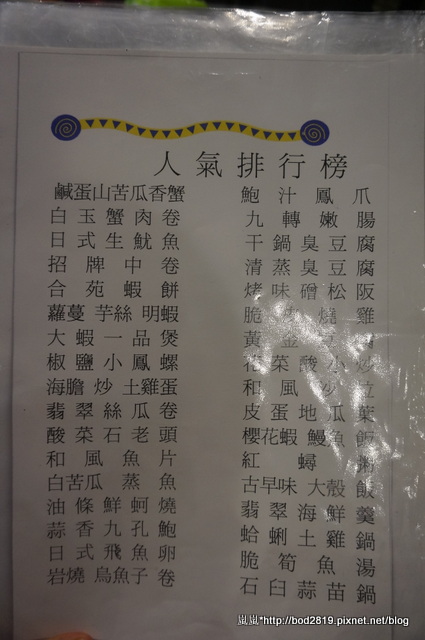 人氣排行榜
鹹蛋山苦瓜香蟹
白玉蟹肉卷
日式生魷魚
招牌中卷
合苑蝦餅
蘿蔓芋絲明蝦
大蝦一品煲
椒鹽小鳳螺
海膽炒土雞蛋
翡翠絲瓜卷
酸菜石老頭
和風魚片
白苦瓜蒸魚
油條鮮蚵燒
蒜香九孔鮑
日式飛魚卵
岩燒烏魚子卷
鮑汁鳳爪
九轉嫩腸
干鍋臭豆腐
清蒸臭豆腐
烤味磳松阪
脆燒雞
黃金豆
花菜酸小炒
和風
皮蛋地瓜葉
櫻花蝦鰻魚飯
紅蟳粥
古早味大殼飯
翡翠海鮮羹
蛤蜊土雞鍋
脆筍魚湯
石臼蒜苗鍋
嵐嵐*http://bod2819.pixnet.net/blog